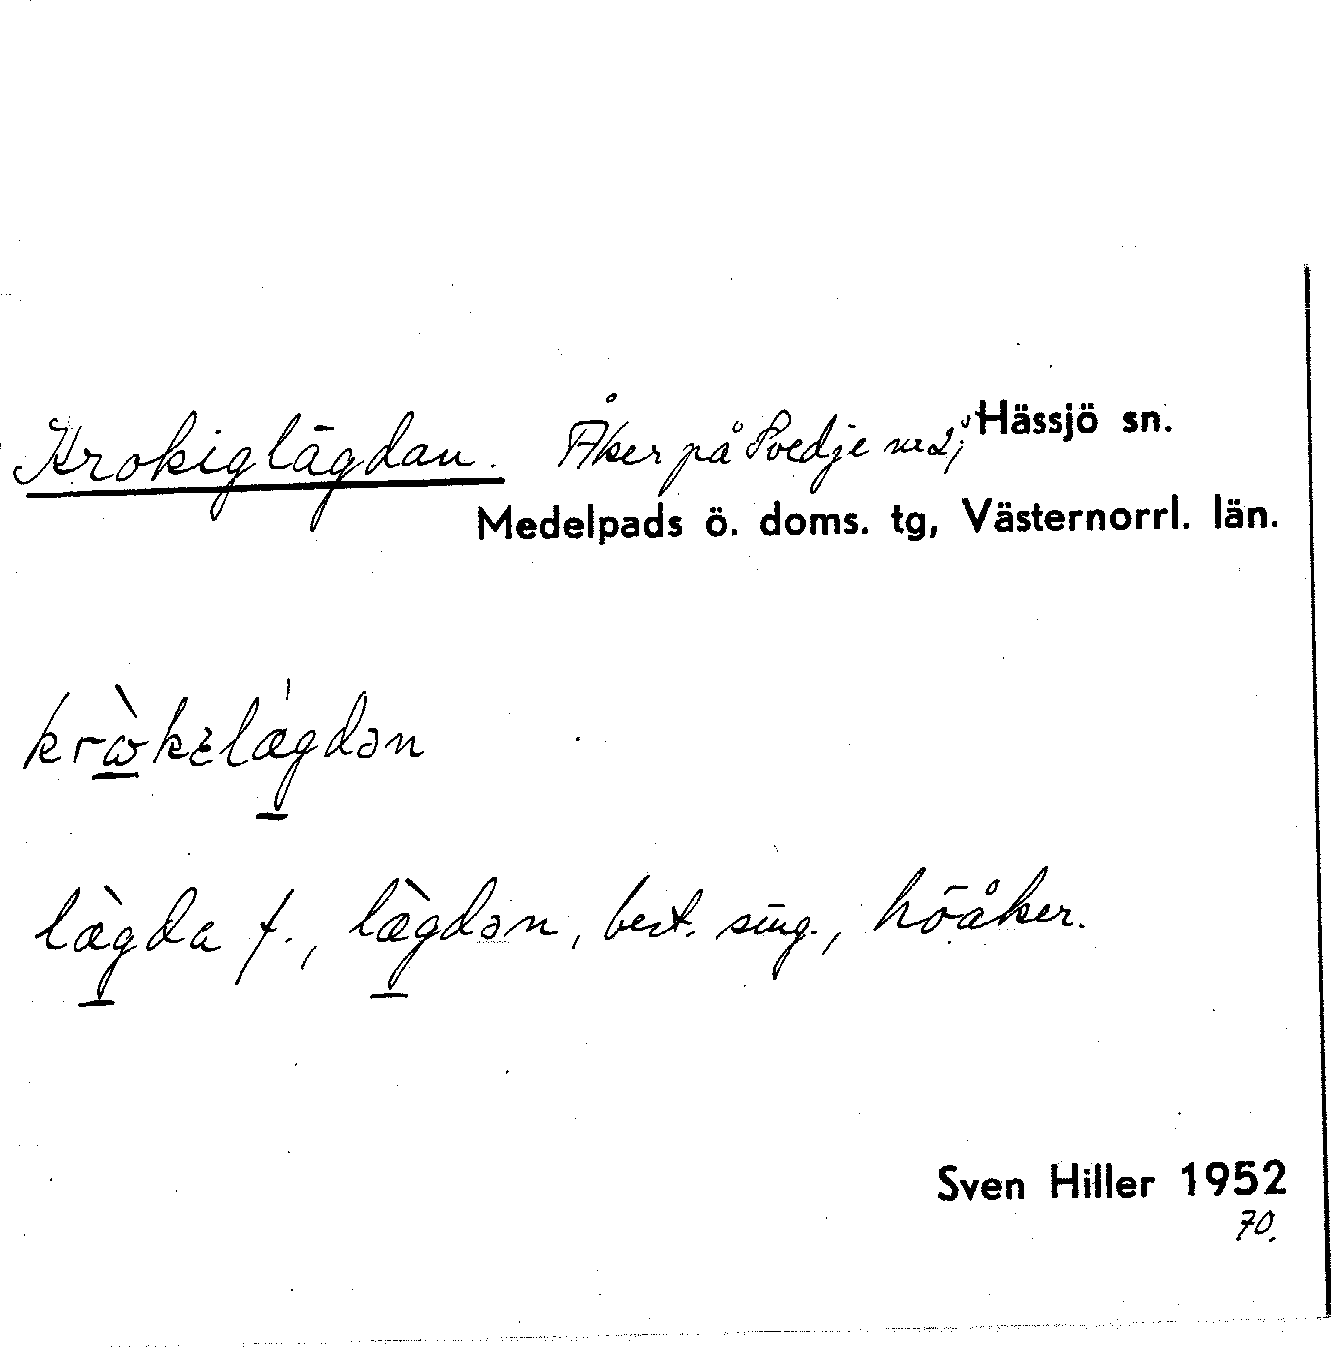 Krokiglägdan. Åker på Soedje nr 2, Hässjö sn.
Medelpads ö. doms. tg, Västernorrl. län.
krὼkɛlǽgdən
læ̀gda f., læ̀gdən, best. sing., höåker.
Sven Hiller 1952
70.